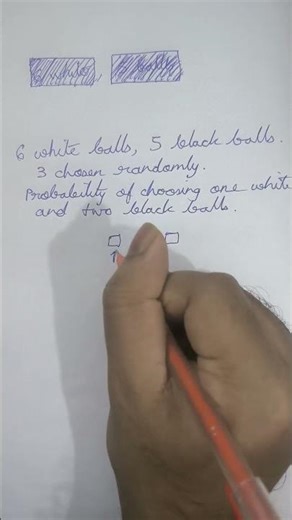 6 white balls, 5 black balls.
3 chosen randomly.
Probability of choosing one white
and two black balls.